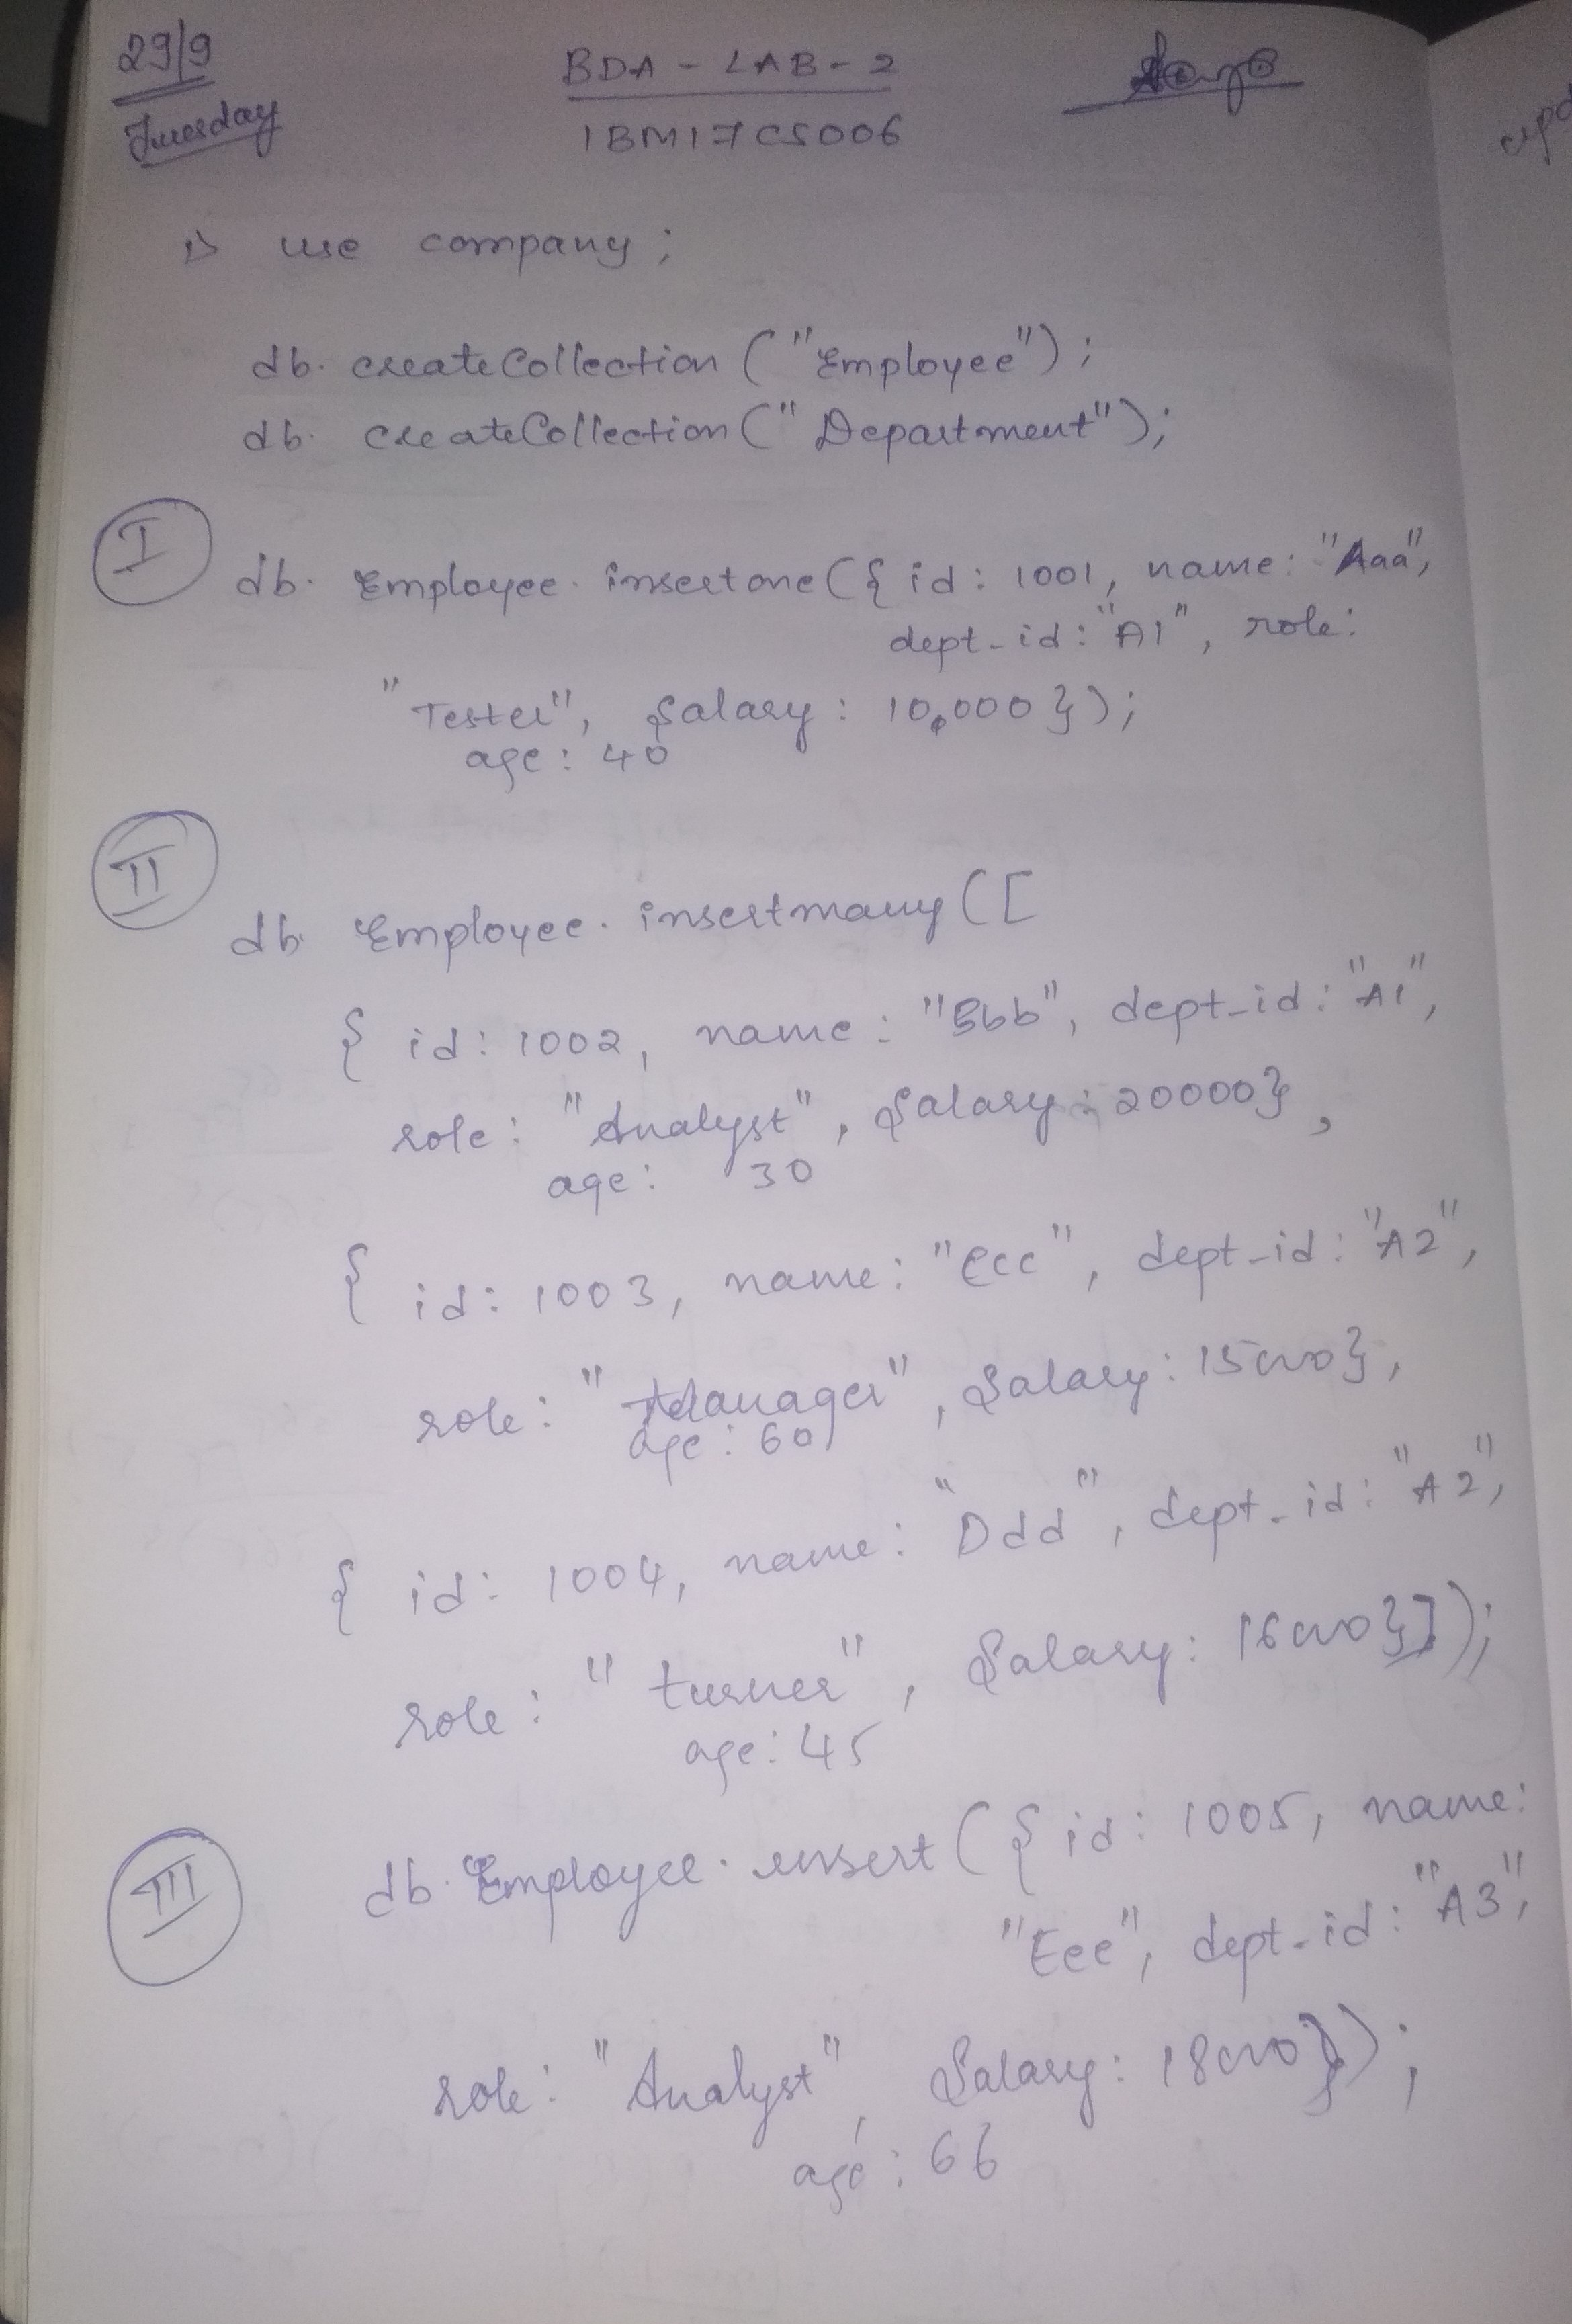 29/9
Tuesday
BDA - LAB - 2
1BM17CS006
1) use company;
db. createCollection ("Employee");
db. createCollection (" Department");
I
db. Employee. insertone ({ id: 1001, name: "Aaa",
dept-id: "A1", role:
"Tester", Salary: 10,000 });
age: 40
II
db. Employee. insertmany ([
{ id: 1002, name: "Bbb", dept-id: "A1",
role: "Analyst", Salary: 20000},
age: 30
{ id: 1003, name: "Ccc", dept-id: "A2",
role: "Manager", Salary: 15000},
age: 60,
{ id: 1004, name: "Ddd", dept-id: "A2",
role: "turner", Salary: 16000}]);
age: 45
III
db. Employee. insert ({ id: 1005, name:
"Eee", dept-id: "A3",
role: "Analyst", Salary: 18000});
age: 66